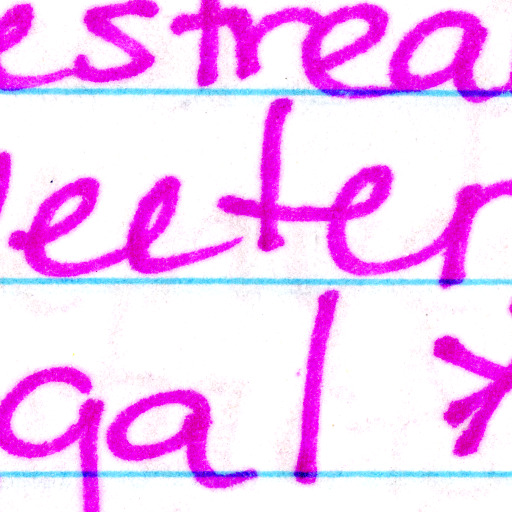 estrea
leeter
gal *